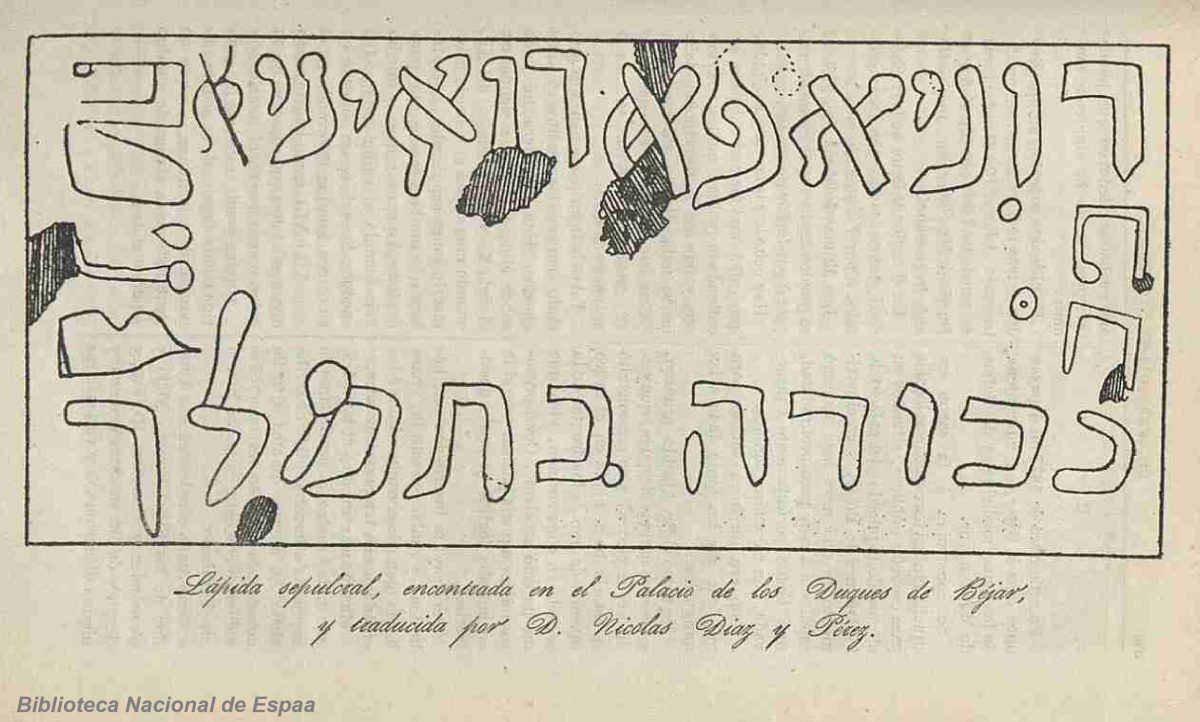 דוניא פאדואיניא
כבודה בת מלך
Lápida sepulcral, encontrada en el Palacio de los Duques de Béjar,
y traducida por D. Nicolas Diaz y Pérez.
Biblioteca Nacional de Espaa